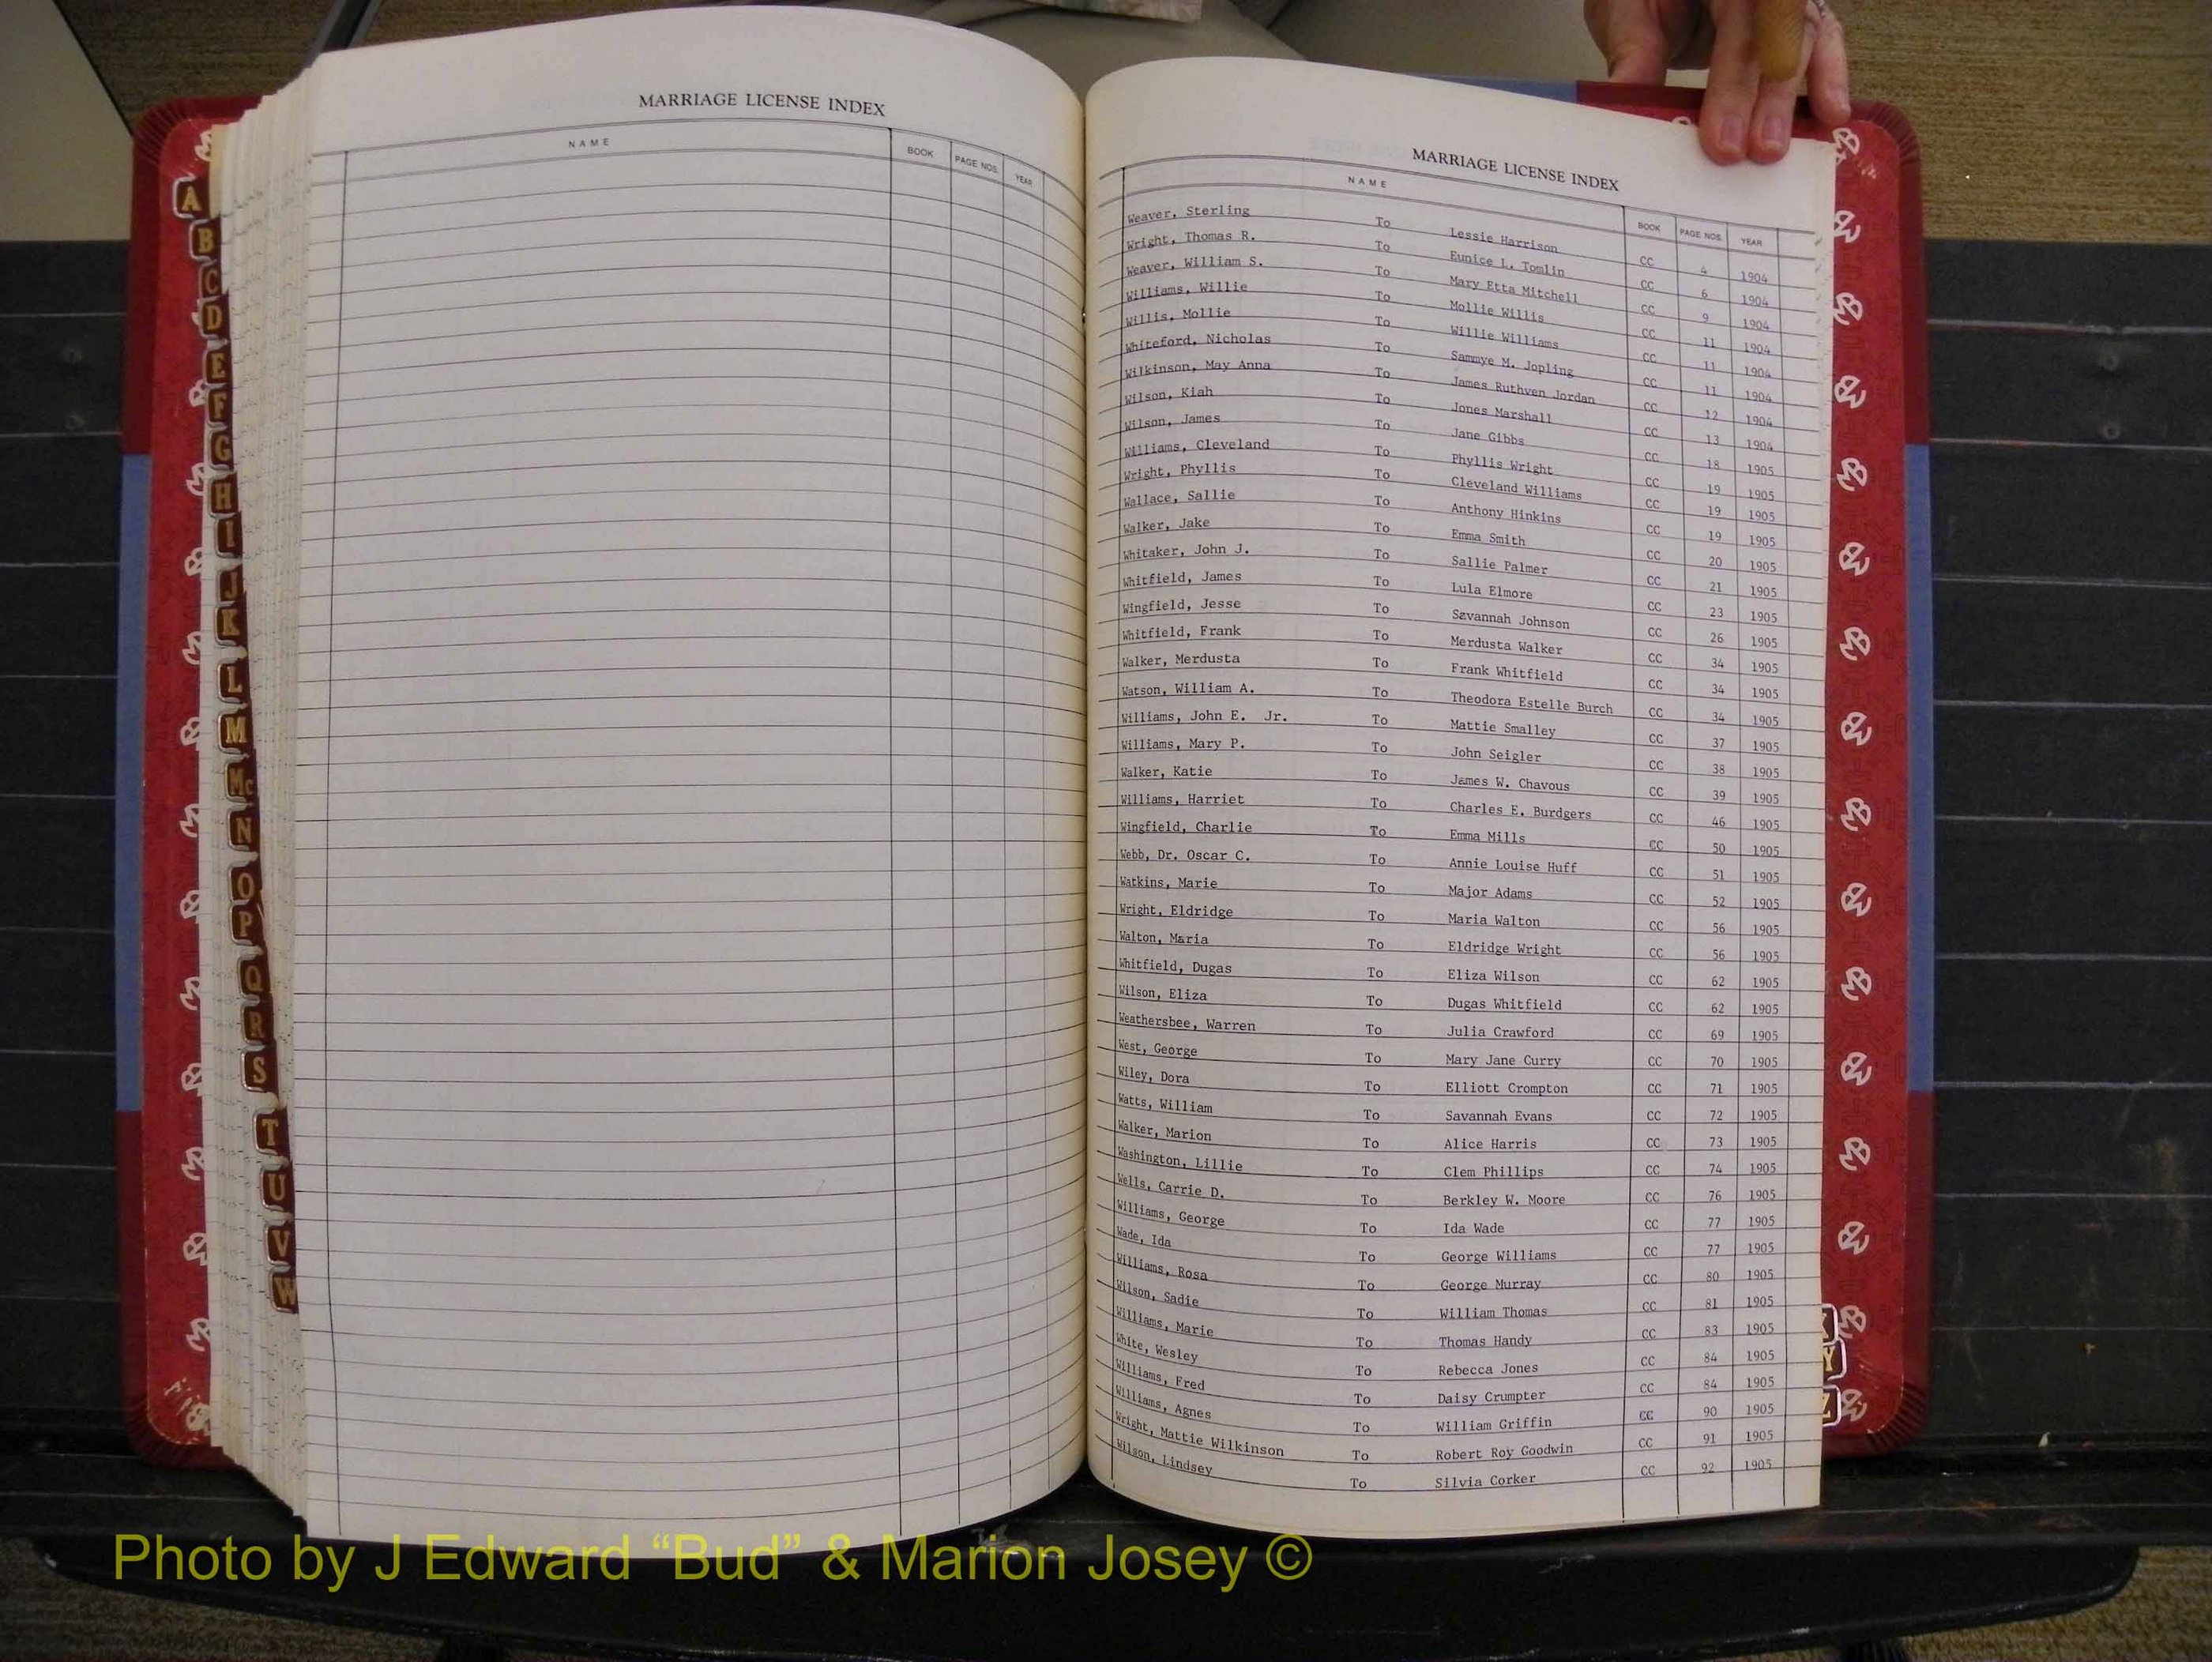 MARRIAGE LICENSE INDEX
NAME BOOK PAGE NOS. YEAR
A
B
C
D
E
F
G
H
I
J
K
L
M
Mc
N
O
P
Q
R
S
T
U
V
W
MARRIAGE LICENSE INDEX
NAME BOOK PAGE NOS. YEAR
Weaver, Sterling To Lessie Harrison CC 4 1904
Wright, Thomas R. To Eunice L. Tomlin CC 6 1904
Weaver, William S. To Mary Etta Mitchell CC 9 1904
Williams, Willie To Mollie Willis CC 11 1904
Willis, Mollie To Willie Williams CC 11 1904
Whiteford, Nicholas To Sammye M. Jopling CC 11 1904
Wilkinson, May Anna To James Ruthven Jordan CC 12 1904
Wilson, Kiah To Jones Marshall CC 13 1904
Wilson, James To Jane Gibbs CC 18 1905
Williams, Cleveland To Phyllis Wright CC 19 1905
Wright, Phyllis To Cleveland Williams CC 19 1905
Wallace, Sallie To Anthony Hinkins CC 19 1905
Walker, Jake To Emma Smith CC 20 1905
Whitaker, John J. To Sallie Palmer CC 21 1905
Whitfield, James To Lula Elmore CC 23 1905
Wingfield, Jesse To Savannah Johnson CC 26 1905
Whitfield, Frank To Merdusta Walker CC 34 1905
Walker, Merdusta To Frank Whitfield CC 34 1905
Watson, William A. To Theodora Estelle Burch CC 34 1905
Williams, John E. Jr. To Mattie Smalley CC 37 1905
Williams, Mary P. To John Seigler CC 38 1905
Walker, Katie To James W. Chavous CC 39 1905
Williams, Harriet To Charles E. Burdgers CC 46 1905
Wingfield, Charlie To Emma Mills CC 50 1905
Webb, Dr. Oscar C. To Annie Louise Huff CC 51 1905
Watkins, Marie To Major Adams CC 52 1905
Wright, Eldridge To Maria Walton CC 56 1905
Walton, Maria To Eldridge Wright CC 56 1905
Whitfield, Dugas To Eliza Wilson CC 62 1905
Wilson, Eliza To Dugas Whitfield CC 62 1905
Weathersbee, Warren To Julia Crawford CC 69 1905
West, George To Mary Jane Curry CC 70 1905
Wiley, Dora To Elliott Crompton CC 71 1905
Watts, William To Savannah Evans CC 72 1905
Walker, Marion To Alice Harris CC 73 1905
Washington, Lillie To Clem Phillips CC 74 1905
Wells, Carrie D. To Berkley W. Moore CC 76 1905
Williams, George To Ida Wade CC 77 1905
Wade, Ida To George Williams CC 77 1905
Williams, Rosa To George Murray CC 80 1905
Wilson, Sadie To William Thomas CC 81 1905
Williams, Marie To Thomas Handy CC 83 1905
White, Wesley To Rebecca Jones CC 84 1905
Williams, Fred To Daisy Crumpter CC 84 1905
Williams, Agnes To William Griffin CC 90 1905
Wright, Mattie Wilkinson To Robert Roy Goodwin CC 91 1905
Wilson, Lindsey To Silvia Corker CC 92 1905
Y
Z
Photo by J Edward “Bud” & Marion Josey ©